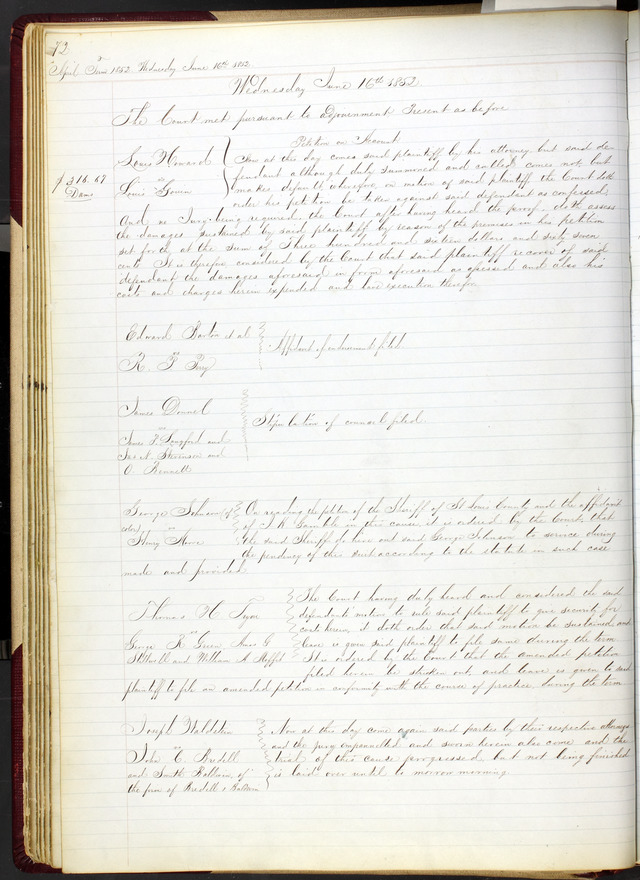 72
April Term 1852 Wednesday June 16th 1852
Wednesday June 16th 1852
The Court met pursuant to adjournment Present as before
Petition on Account
Louis Howard
vs
Louis
$316.67
Dams
Now at this day comes said plaintiff by his attorney but said de
fendant although duly summoned and called comes not but
makes default wherefore on motion of said plaintiff the Court doth
order his petition be taken against said defendant as confessed,
And no Jury being required, the Court after having heard the proof, doth assess
the damages sustained by said plaintiff by reason of the premises in his petition
set forth at the sum of Three hundred and sixteen dollars and sixty seven
cents It is therefore considered by the Court that said plaintiff recover of said
defendant the damages aforesaid in form aforesaid assessed and also his
costs and charges herein expended and have execution therefor
Edward Barton et al
vs
R. P. Perry
Affidavit of filed
James Donnel
vs
James T. Langford and
Jas. N. Stevenson and
O. Bennett
Stipulations of counsel filed
George Johnson (of
color)
vs
Henry Moore
On reading the petition of the Sheriff of St Louis County and the affidavit
of Gamble in this cause it is ordered by the Court that
the said Sheriff do hire out said George Johnson to service during
the pendency of this suit according to the statute in such case
made and provided
Thomas H. Tyne
vs
George R. Green, Amos G
Stillwell and William A. Moffett
The Court having duly heard and considered the said
defendants' motion to rule said plaintiff to give security for
costs herein, it doth order that said motion be sustained, and
leave is given said plaintiff to file same during the term
It is ordered by the Court that the amended petition
filed herein be stricken out, and leave is given to said
plaintiff to file an amended petition in conformity with the course of practice, during the term
Joseph Waldstein
vs
John C. Bredell
and Smith Baldwin, of
the firm of Bredell & Baldwin
Now at this day come again said parties by their respective attorneys
and the jury empannelled and sworn herein also come and the
trial of this cause progressed but not being finished
is laid over until to morrow morning